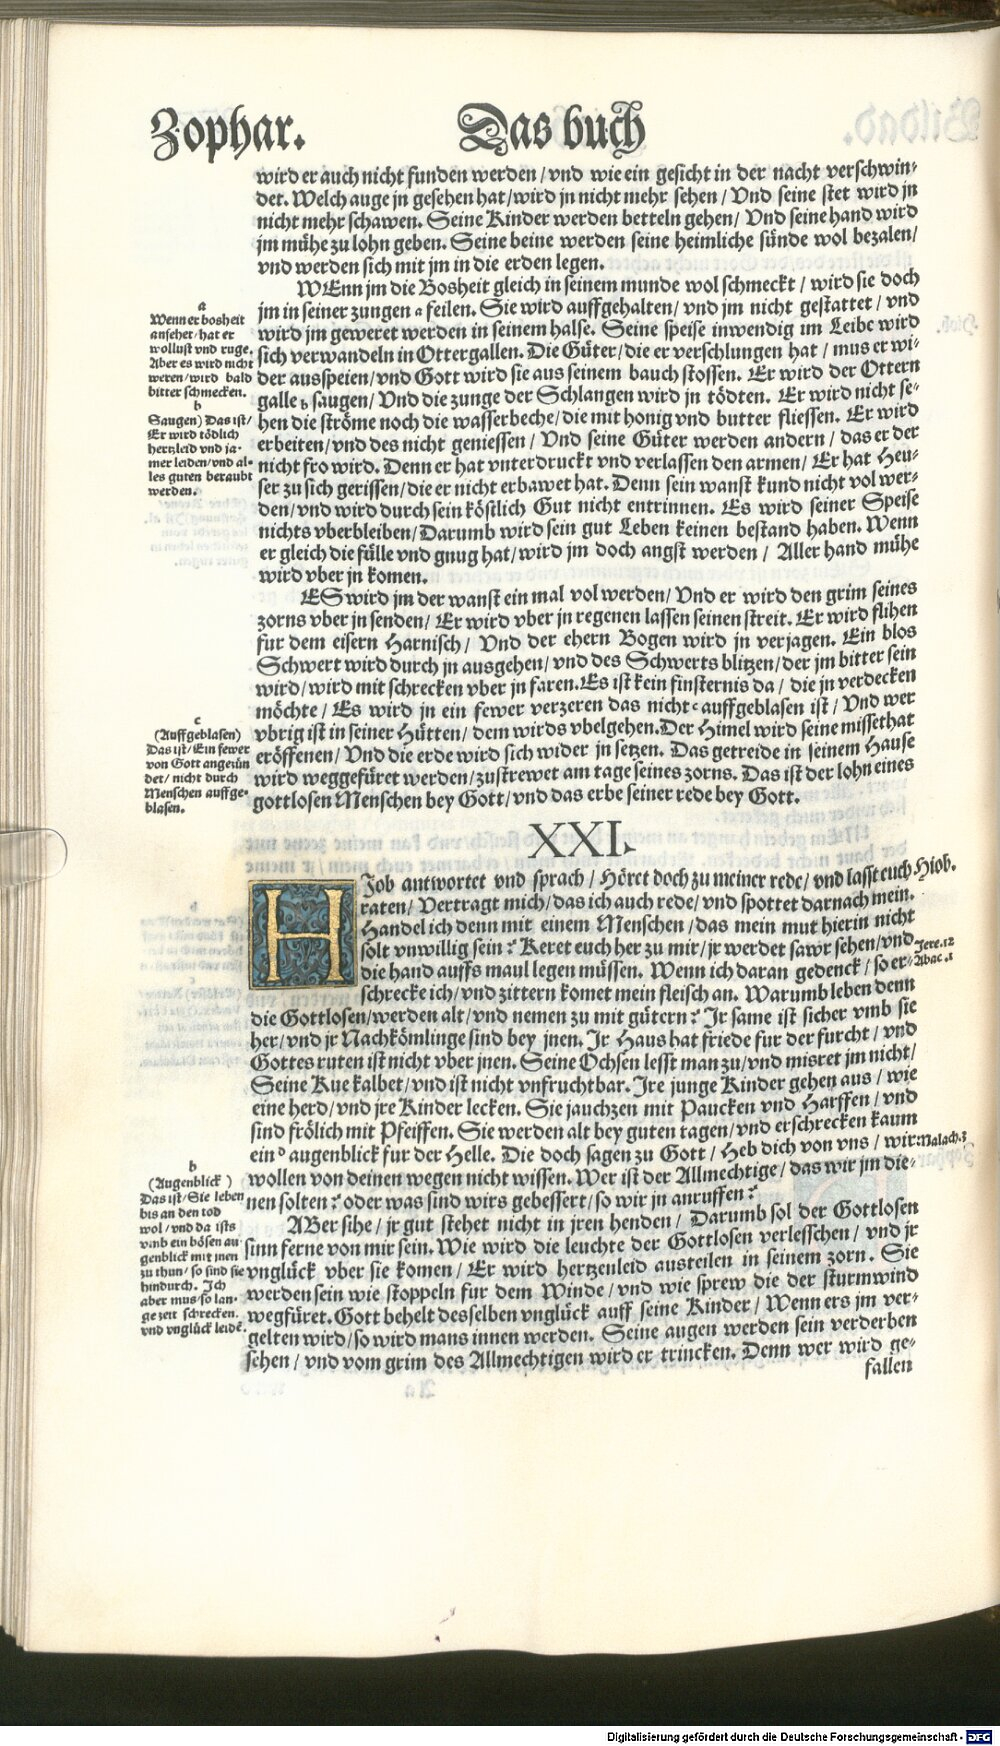 Zophar.
Das buch
wird er auch nicht funden werden / vnd wie ein gesicht in der nacht verschwin-
det. Welch auge jn gesehen hat / wird jn nicht mehr sehen / Vnd seine stet wird jn
nicht mehr schawen. Seine Kinder werden betteln gehen / Vnd seine hand wird
jm mühe zu lohn geben. Seine beine werden seine heimliche sünde wol bezalen /
vnd werden sich mit jm in die erden legen.
WEnn jm die Bosheit gleich in seinem munde wol schmeckt / wird sie doch
jm in seiner zungen a feilen. Sie wird auffgehalten / vnd jm nicht gestattet / vnd
wird jm geweret werden in seinem halse. Seine speise inwendig im Leibe wird
sich verwandeln in Ottergallen. Die Güter / die er verschlungen hat / mus er wi-
der ausspeien / vnd Gott wird sie aus seinem bauch stossen. Er wird der Ottern
galle b saugen / Vnd die zunge der Schlangen wird jn tödten. Er wird nicht se-
hen die ströme noch die wasserbeche / die mit honig vnd butter fliessen. Er wird
erbeiten / vnd des nicht geniessen / Vnd seine Güter werden andern / das er der
nicht fro wird. Denn er hat vnterdruckt vnd verlassen den armen / Er hat Heu-
ser zu sich gerissen / die er nicht erbawet hat. Denn sein wanst kund nicht vol wer-
den / vnd wird durch sein köstlich Gut nicht entrinnen. Es wird seiner Speise
nichts vberbleiben / Darumb wird sein gut Leben keinen bestand haben. Wenn
er gleich die fülle vnd gnug hat / wird jm doch angst werden / Aller hand mühe
wird vber jn komen.
ES wird jm der wanst ein mal vol werden / Vnd er wird den grim seines
zorns vber jn senden / Er wird vber jn regenen lassen seinen streit. Er wird flihen
fur dem eisern Harnisch / Vnd der ehern Bogen wird jn verjagen. Ein blos
Schwert wird durch jn ausgehen / vnd des Schwerts blitzen / der jm bitter sein
wird / wird mit schrecken vber jn faren. Es ist kein finsternis da / die jn verdecken
möchte / Es wird jn ein fewer verzeren das nicht c auffgeblasen ist / Vnd wer
vbrig ist in seiner Hütten / dem wirds vbelgehen. Der Himel wird seine missethat
eröffenen / Vnd die erde wird sich wider jn setzen. Das getreide in seinem Hause
wird weggefüret werden / zustrewet am tage seines zorns. Das ist der lohn eines
gottlosen Menschen bey Gott / vnd das erbe seiner rede bey Gott.
a
Wenn er bosheit
anfehet / hat er
wollust vnd ruge.
Aber es wird nicht
weren / wird bald
bitter schmecken.
b
Saugen) Das ist /
Er wird tödlich
hertzleid vnd ja-
mer leiden / vnd al-
les guten beraubt
werden.
c
(Auffgeblasen)
Das ist / Ein fewer
von Gott angezün
det / nicht durch
Menschen auffge-
blasen.
XXI.
HJob antwortet vnd sprach / Höret doch zu meiner rede / vnd lasst euch
raten / Vertragt mich / das ich auch rede / vnd spottet darnach mein.
Handel ich denn mit einem Menschen / das mein mut hierin nicht
solt vnwillig sein? Keret euch her zu mir / jr werdet sawr sehen / vnd
die hand auffs maul legen müssen. Wenn ich daran gedenck / so er-
schrecke ich / vnd zittern komet mein fleisch an. Warumb leben denn
die Gottlosen / werden alt / vnd nemen zu mit gütern? Jr same ist sicher vmb sie
her / vnd jr Nachkömlinge sind bey jnen. Jr Haus hat friede fur der furcht / vnd
Gottes ruten ist nicht vber jnen. Seine Ochsen lesst man zu / vnd misret jm nicht /
Seine Kue kalbet / vnd ist nicht vnfruchtbar. Jre junge Kinder gehen aus / wie
eine herd / vnd jre Kinder lecken. Sie jauchzen mit Paucken vnd Harffen / vnd
sind frölich mit Pfeiffen. Sie werden alt bey guten tagen / vnd erschrecken kaum
ein b augenblick fur der Helle. Die doch sagen zu Gott / Heb dich von vns / wir
wollen von deinen wegen nicht wissen. Wer ist der Allmechtige / das wir jm die-
nen solten? oder was sind wirs gebessert / so wir jn anruffen?
ABer sihe / jr gut stehet nicht in jren henden / Darumb sol der Gottlosen
sinn ferne von mir sein. Wie wird die leuchte der Gottlosen verlesschen / vnd jr
vnglück vber sie komen / Er wird hertzenleid austeilen in seinem zorn. Sie
werden sein wie stoppeln fur dem Winde / vnd wie sprew die der sturmwind
wegfüret. Gott behelt desselben vnglück auff seine Kinder / Wenn ers jm ver-
gelten wird / so wird mans innen werden. Seine augen werden sein verderben
sehen / vnd vom grim des Allmechtigen wird er trincken. Denn wer wird ge-
fallen
Hiob.
Jere. 12
Abac. 1
Malach. 3
b
(Augenblick)
Das ist / Sie leben
bis an den tod
wol / vnd da ists
vmb ein bösen au
genblick mit jnen
zu thun / so sind sie
hindurch. Ich
aber mus so lan-
ge zeit schrecken.
vnd vnglück leidē.
Digitalisierung gefördert durch die Deutsche Forschungsgemeinschaft - DFG